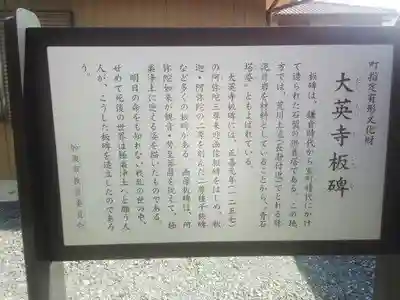 町指定有形文化財
大英寺板碑
板碑は、鎌倉時代から室町時代にかけ
て造られた石製の供養塔である。この地
方では、荒川上流(長瀞付近)でとれる緑
泥片岩を材料としていることから、青石
塔婆ともよばれている。
大英寺板碑には、正嘉元年(一二五七)
の阿弥陀三尊来迎画像板碑をはじめ、釈
迦・阿弥陀の二尊を刻んだ二尊種子板碑
など多くの板碑がある。画像板碑は、阿
弥陀如来が観音・勢至菩薩を従えて、極
楽浄土に迎える姿を描いたものである。
明日の命をも知れない戦乱の世の中、
せめて死後の世界は極楽浄土へと願う人
人が、こうした板碑を造立したのであろ
う。
教育委員会